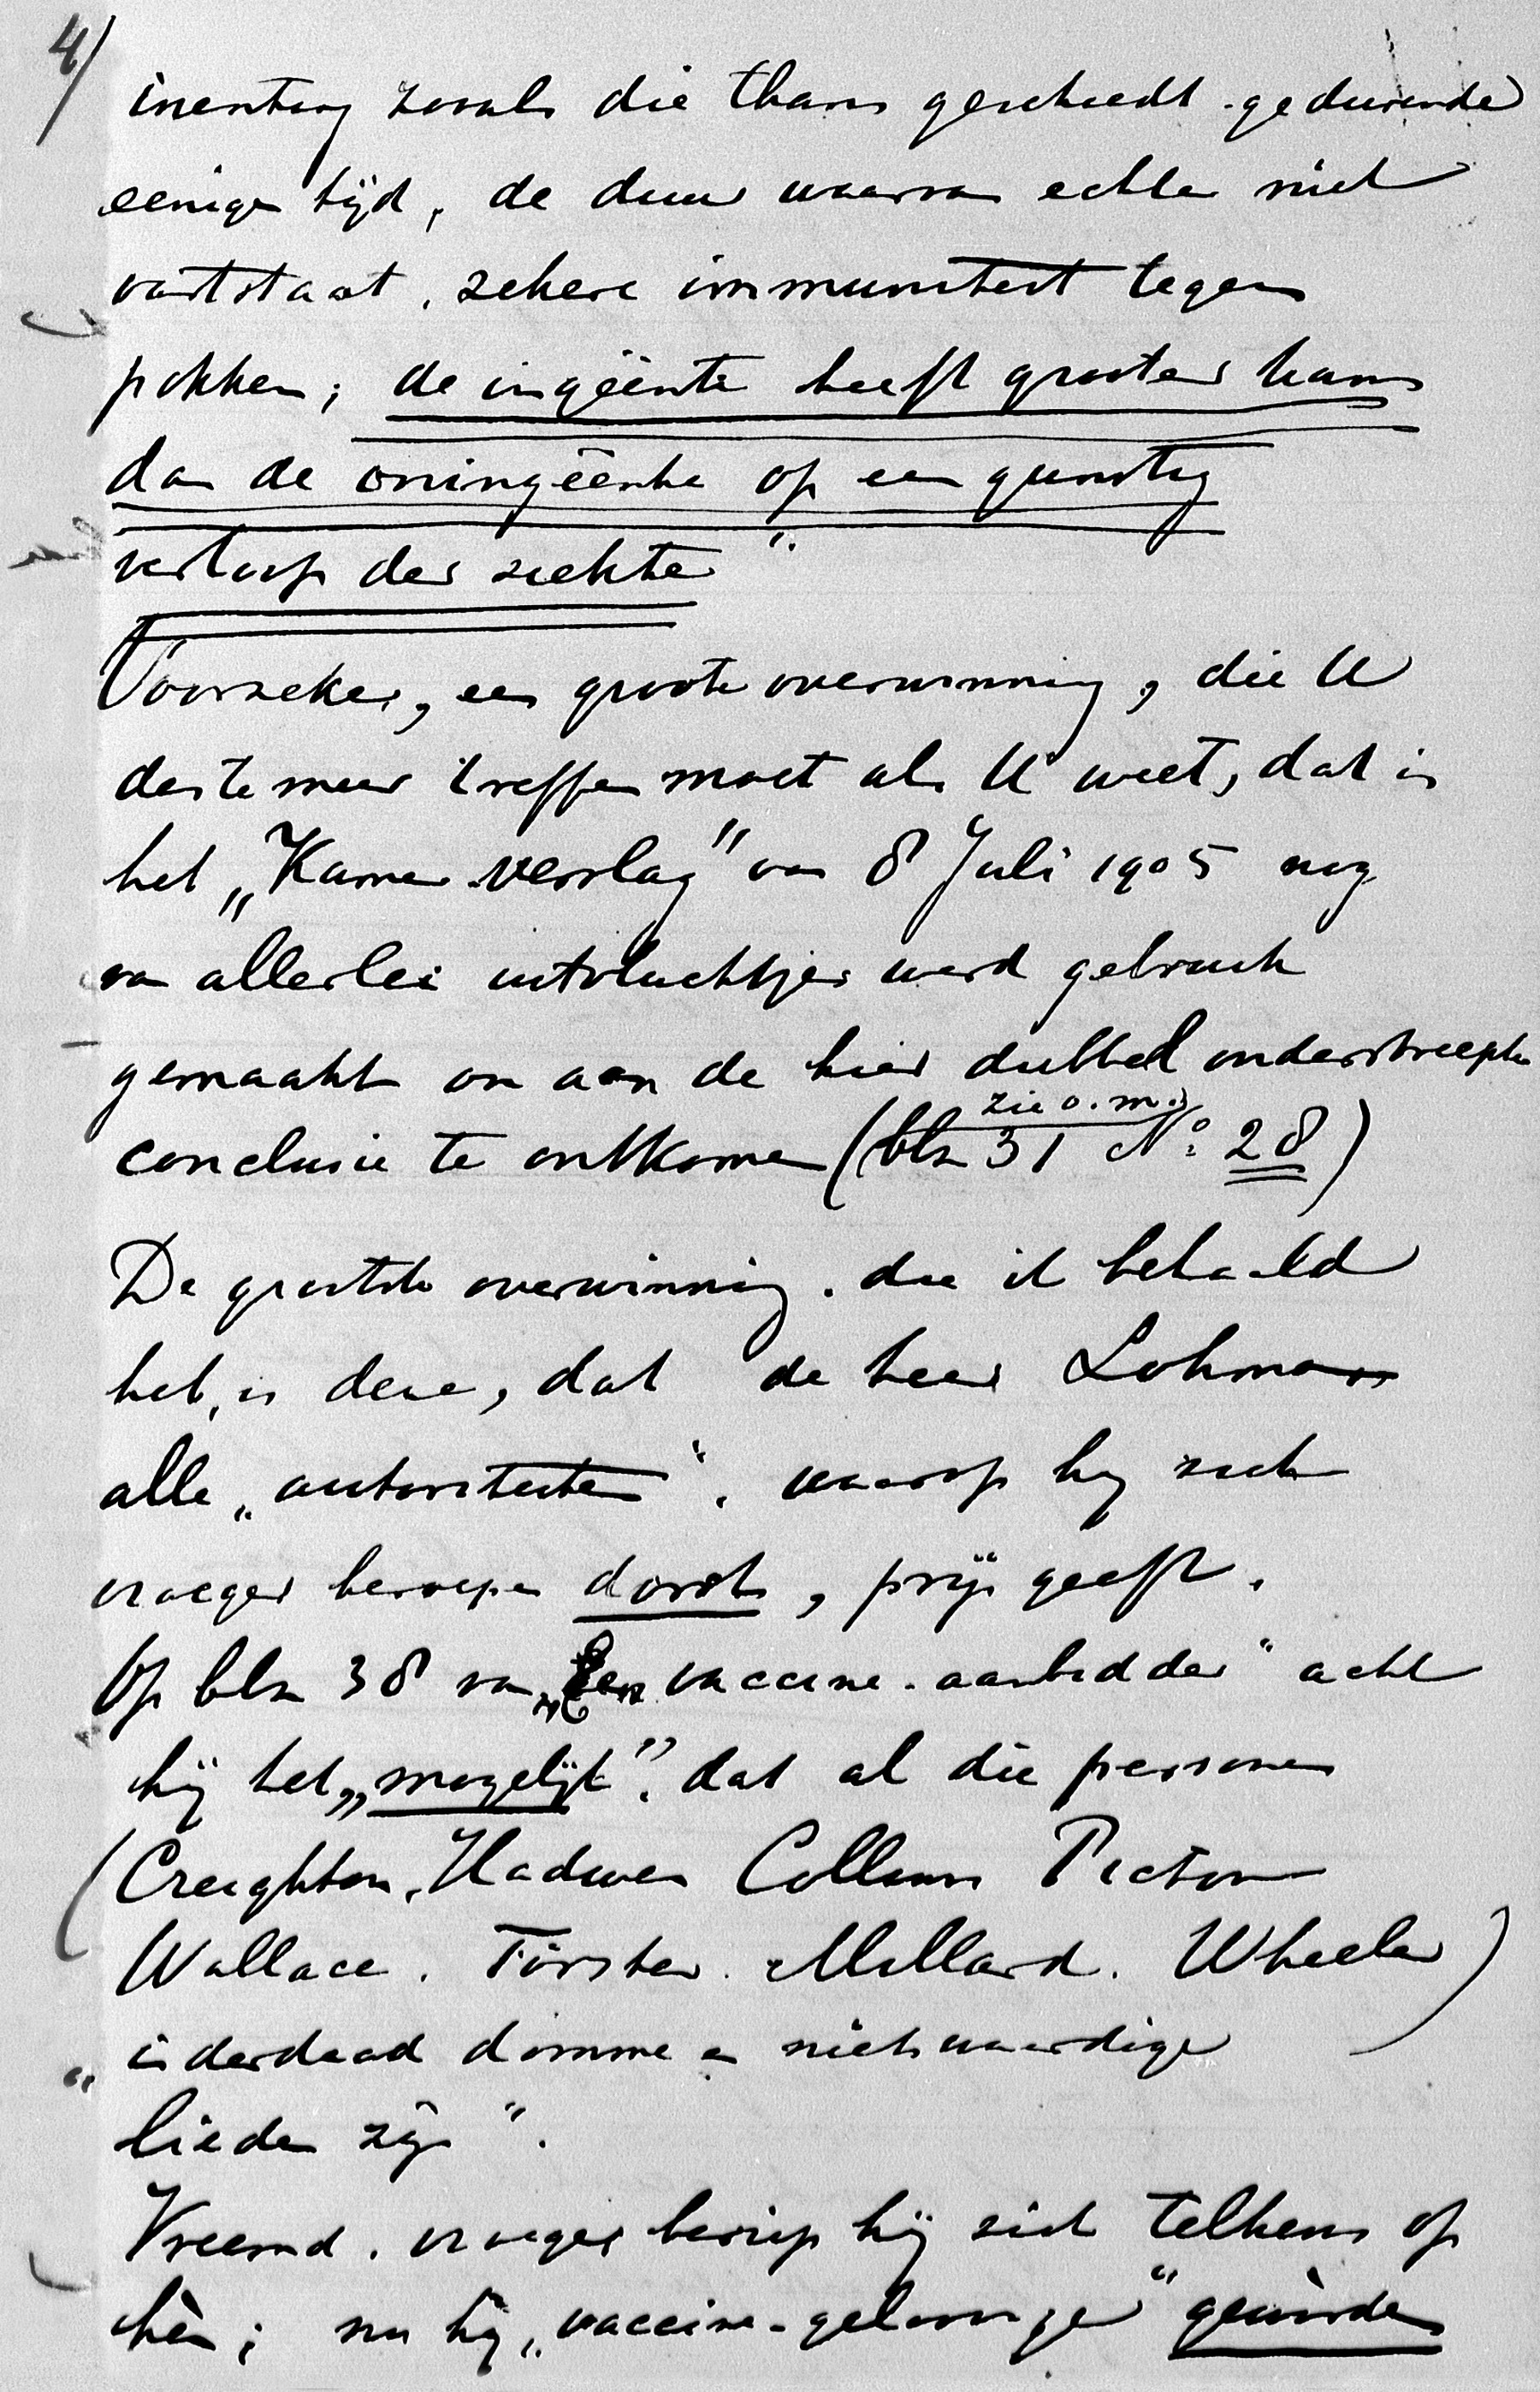 4/
inenting zooals die thans geschiedt gedurende
eenigen tijd, de duur waarvan echter niet
vaststaat, zekere immuniteit tegen
pokken; de ingeënte heeft grooter kans
dan de oningeënte op een gunstig
verloop der ziekte".
Voorzeker, een groote overwinning, die U
des te meer treffen moet als U weet, dat in
het „Kamerverslag" van 8 Juli 1905 nog
van allerlei uitvluchtjes werd gebruik
gemaakt om aan de hier dubbel onderstreepte
zie o.m.
conclusie te ontkomen (blz 31 No 28)
De grootste overwinning, die ik behaald
heb, is deze, dat de heer Lohman
alle „autoriteiten", waarop hij zich
vroeger beroepen dorst, prijs geeft.
Op blz 38 van „Een vaccine-aanbidder" acht
hij het „mogelijk", dat al die personen
(Creighton, Hadwen Collins Picton
Wallace. Förster. Millard. Wheeler)
„inderdaad domme en nietswaardige
lieden zijn".
Vreemd, vroeger beriep hij zich telkens op
hèn; nu hij „vaccine-geloovige" gewòrden